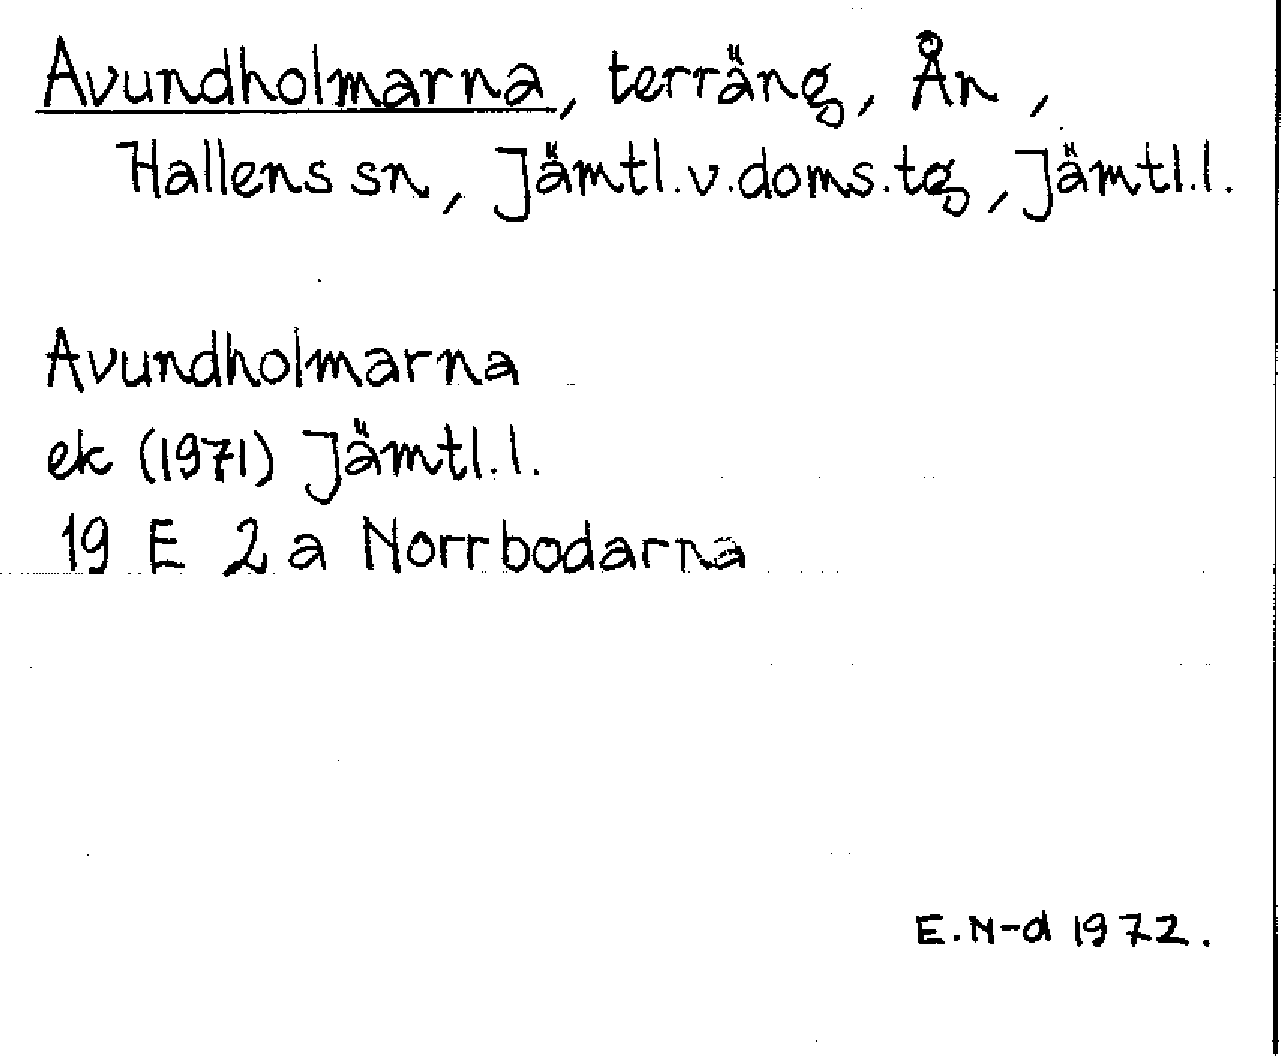 Avundholmarna, terräng, Ån,
Hallens sn, Jämtl.v.doms.tg, Jämtl.l.
Avundholmarna
ek (1971) Jämtl.l.
19 E 2 a Norrbodarna
E.N-d 1972.